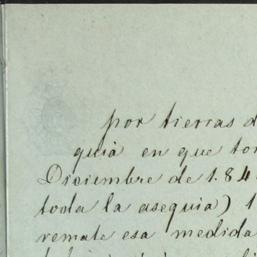 por tierras d
quia en que to
Diciembre de 1.84
toda la asequia) 1
remate esa medida